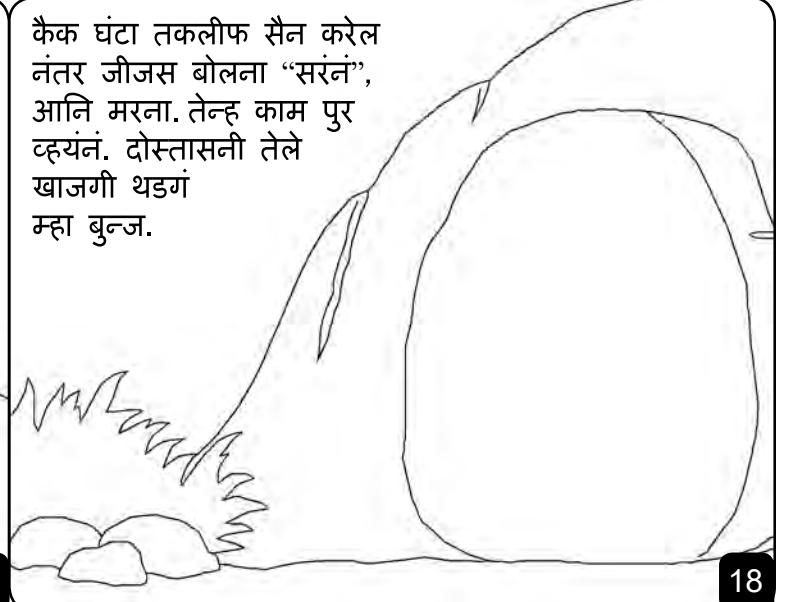 कैक घंटा तकलीफ सैन करेल
नंतर जीजस बोलना “सरंनं”,
आनि मरना. तेन्ह काम पुर
व्हयंनं. दोस्तासनी तेले
खाजगी थडगं
म्हा बुन्ज.
18